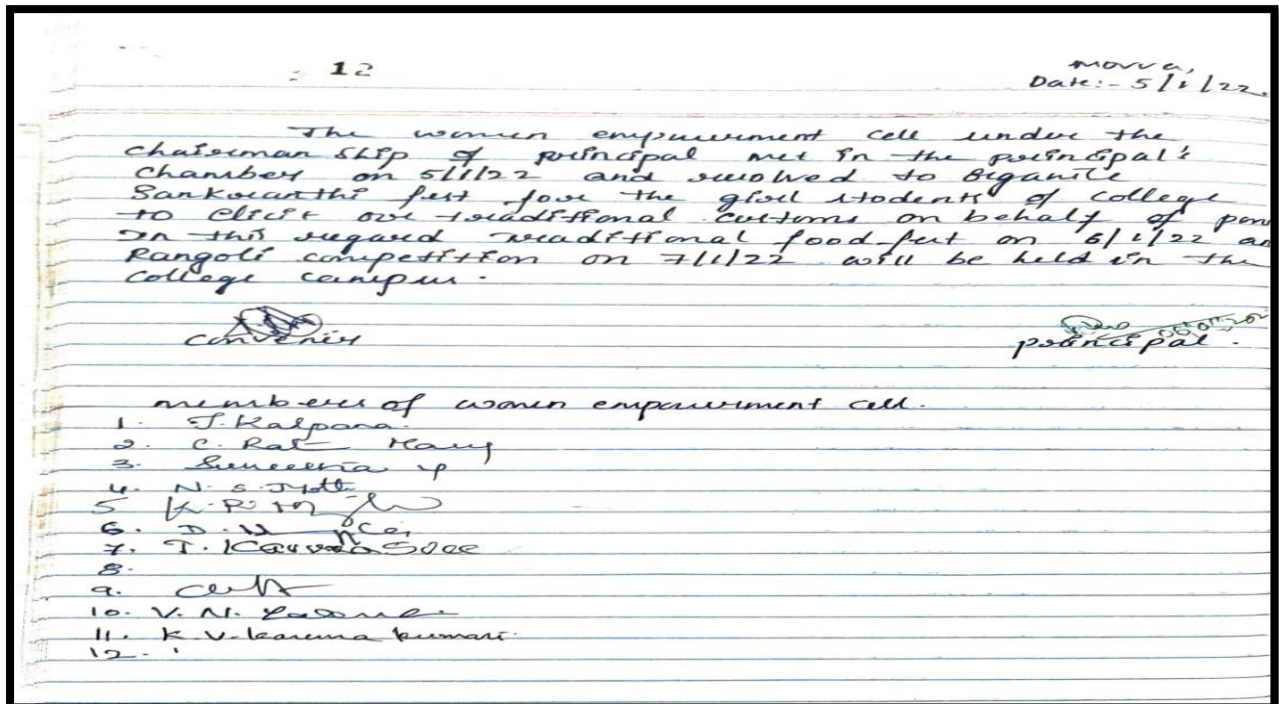 12
Movva,
Date:- 5/1/22.
The women empowerment cell under the
chairman ship of principal met in the principal's
chamber on 5/1/22 and resolved to organise
Sankranthi fest for the girl students of college
to elicit our traditional customs on behalf of
In this regard traditional food fest on 6/1/22
Rangoli competition on 7/1/22 will be held in the
college campus.
convenir principal.
members of women empowerment cell.
1. T. Kalpana.
2. C.
3.
4. N. S. Jyothi
5 K. P.
6. D.
7. T.
8.
9.
10. V. N.
11. K. V. karuna kumari.
12.